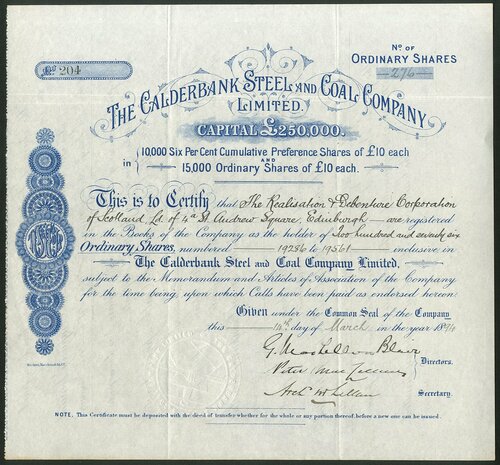 No. 204
No. OF
ORDINARY SHARES
276
THE CALDERBANK STEEL AND COAL COMPANY
LIMITED.
CAPITAL £250,000.
in
10,000 Six Per Cent Cumulative Preference Shares of £10 each
AND
15,000 Ordinary Shares of £10 each.
This is to Certify that The Realisation & Debenture Corporation
of Scotland Ld. of 4a St. Andrew Square, Edinburgh are registered
in the Books of the Company as the holder of Two hundred and seventy six
Ordinary Shares, numbered 19286 to 19561 inclusive in
The Calderbank Steel and Coal Company Limited,
subject to the Memorandum and Articles of Association of the Company
for the time being, upon which Calls have been paid as endorsed hereon.
Given under the Common Seal of the Company
this day of March in the year 1894
Directors.
Peter
Secretary.
NOTE. This Certificate must be deposited with the deed of transfer whether for the whole or any portion thereof, before a new one can be issued.